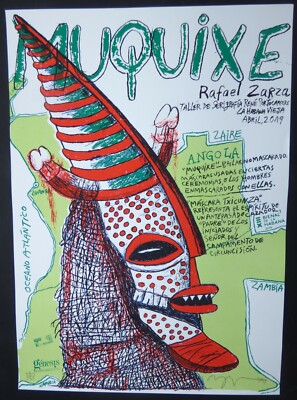 MUQUIXE
Rafael Zarza
TALLER DE SERIGRAFÍA RENÉ PORTOCARRERO
LA HABANA VIEJA
ABRIL, 2019
ZAIRE
ANGOLA
"MUQUIXE"
MÁSCARAS USADAS EN CIERTAS
CEREMONIAS, O LOS HOMBRES
ENMASCARADOS CON ELLAS.
"MÁSCARA TXICUNZA"
REPRESENTA EL ESPÍRITU DE
UN ANTEPASADO CAZADOR,
"PADRE" DE LOS
INICIADOS Y
SEÑOR DEL
CAMPAMENTO DE
CIRCUNCISIÓN.
BIENAL
DE LA
HABANA
OCÉANO ATLÁNTICO
ZAMBIA
génesis